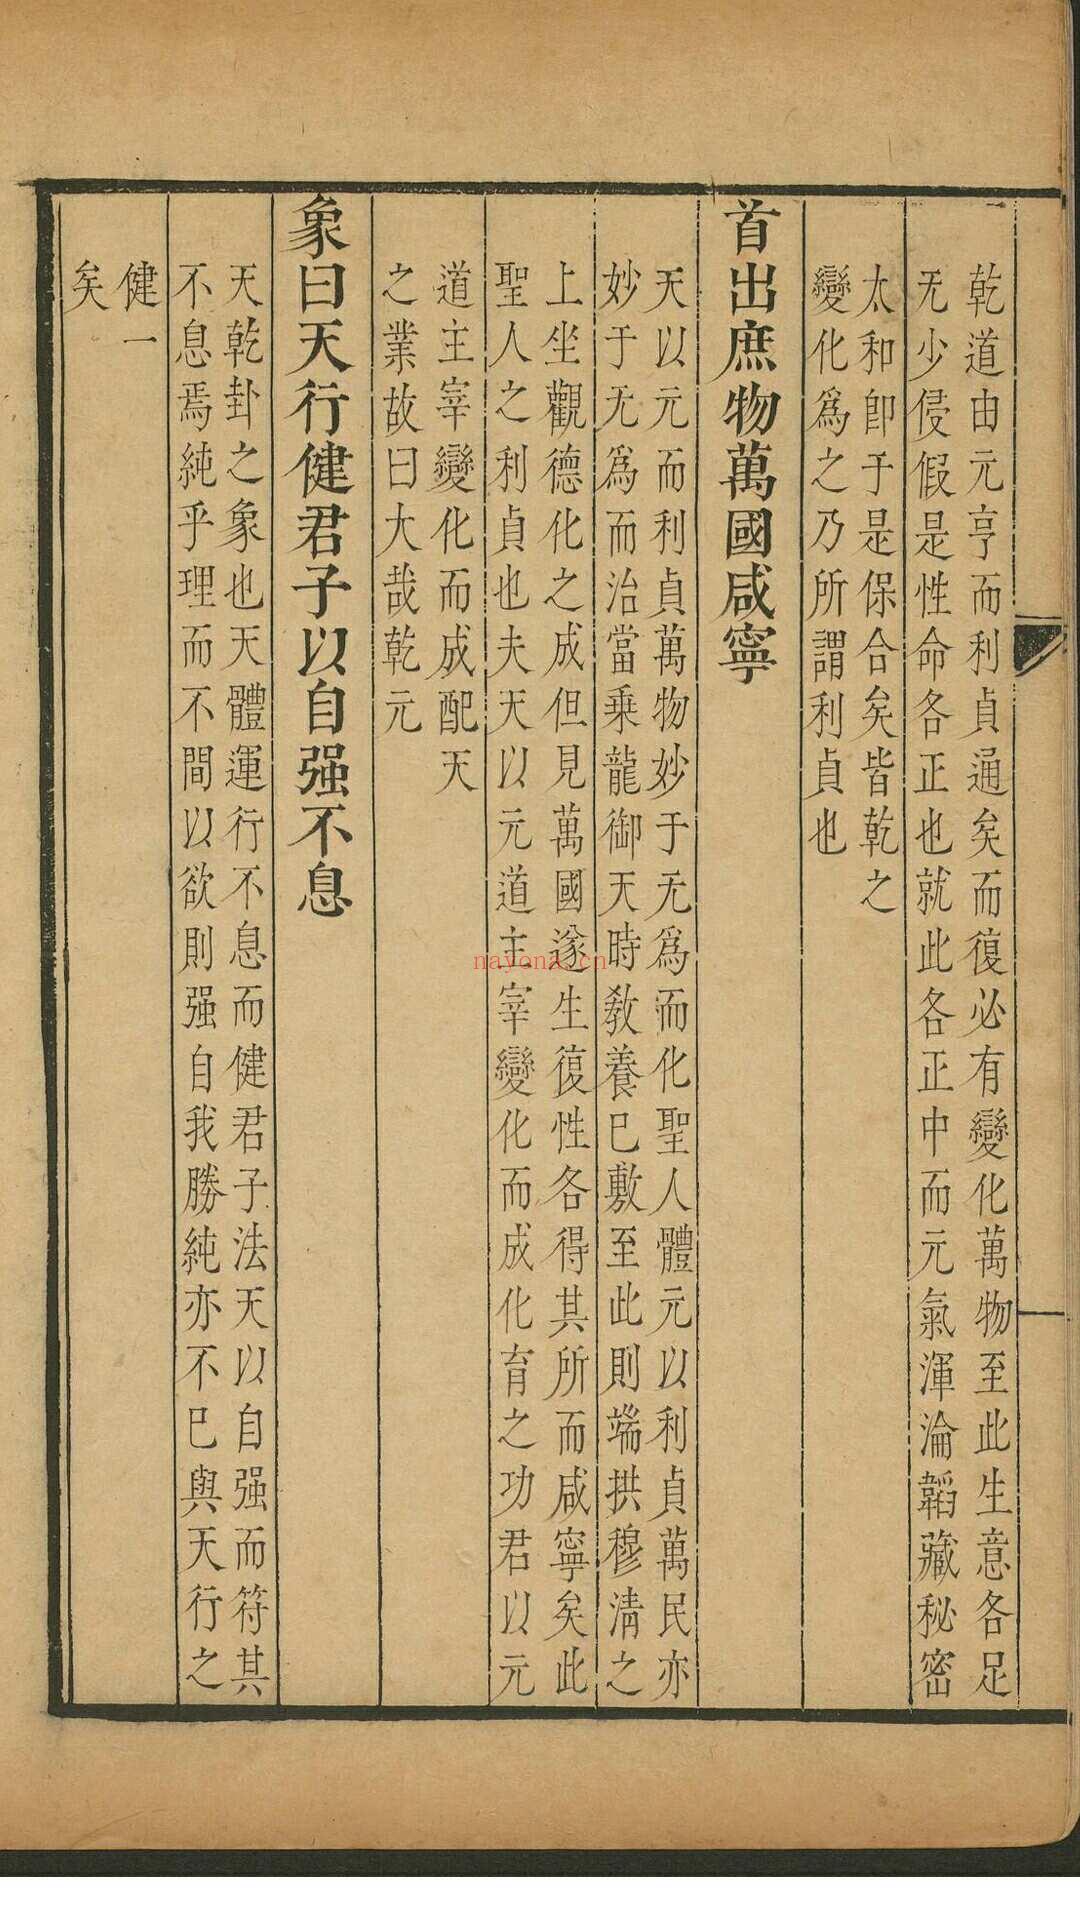 乾道由元亨而利貞通矣而復必有變化萬物至此生意各足
无少侵假是性命各正也就此各正中而元氣渾淪韜藏秘密
太和卽于是保合矣皆乾之
變化爲之乃所謂利貞也
首出庶物萬國咸寧
天以元而利貞萬物妙于无爲而化聖人體元以利貞萬民亦
妙于无爲而治當乗龍御天時敎養已敷至此則端拱穆淸之
上坐觀德化之成但見萬國遂生復性各得其所而咸寧矣此
聖人之利貞也夫天以元道主宰變化而成化育之功君以元
道主宰變化而成配天
之業故曰大哉乾元
象曰天行健君子以自强不息
天乾卦之象也天體運行不息而健君子法天以自强而符其
不息焉純乎理而不間以欲則强自我勝純亦不已與天行之
健一
矣
nayona.cn